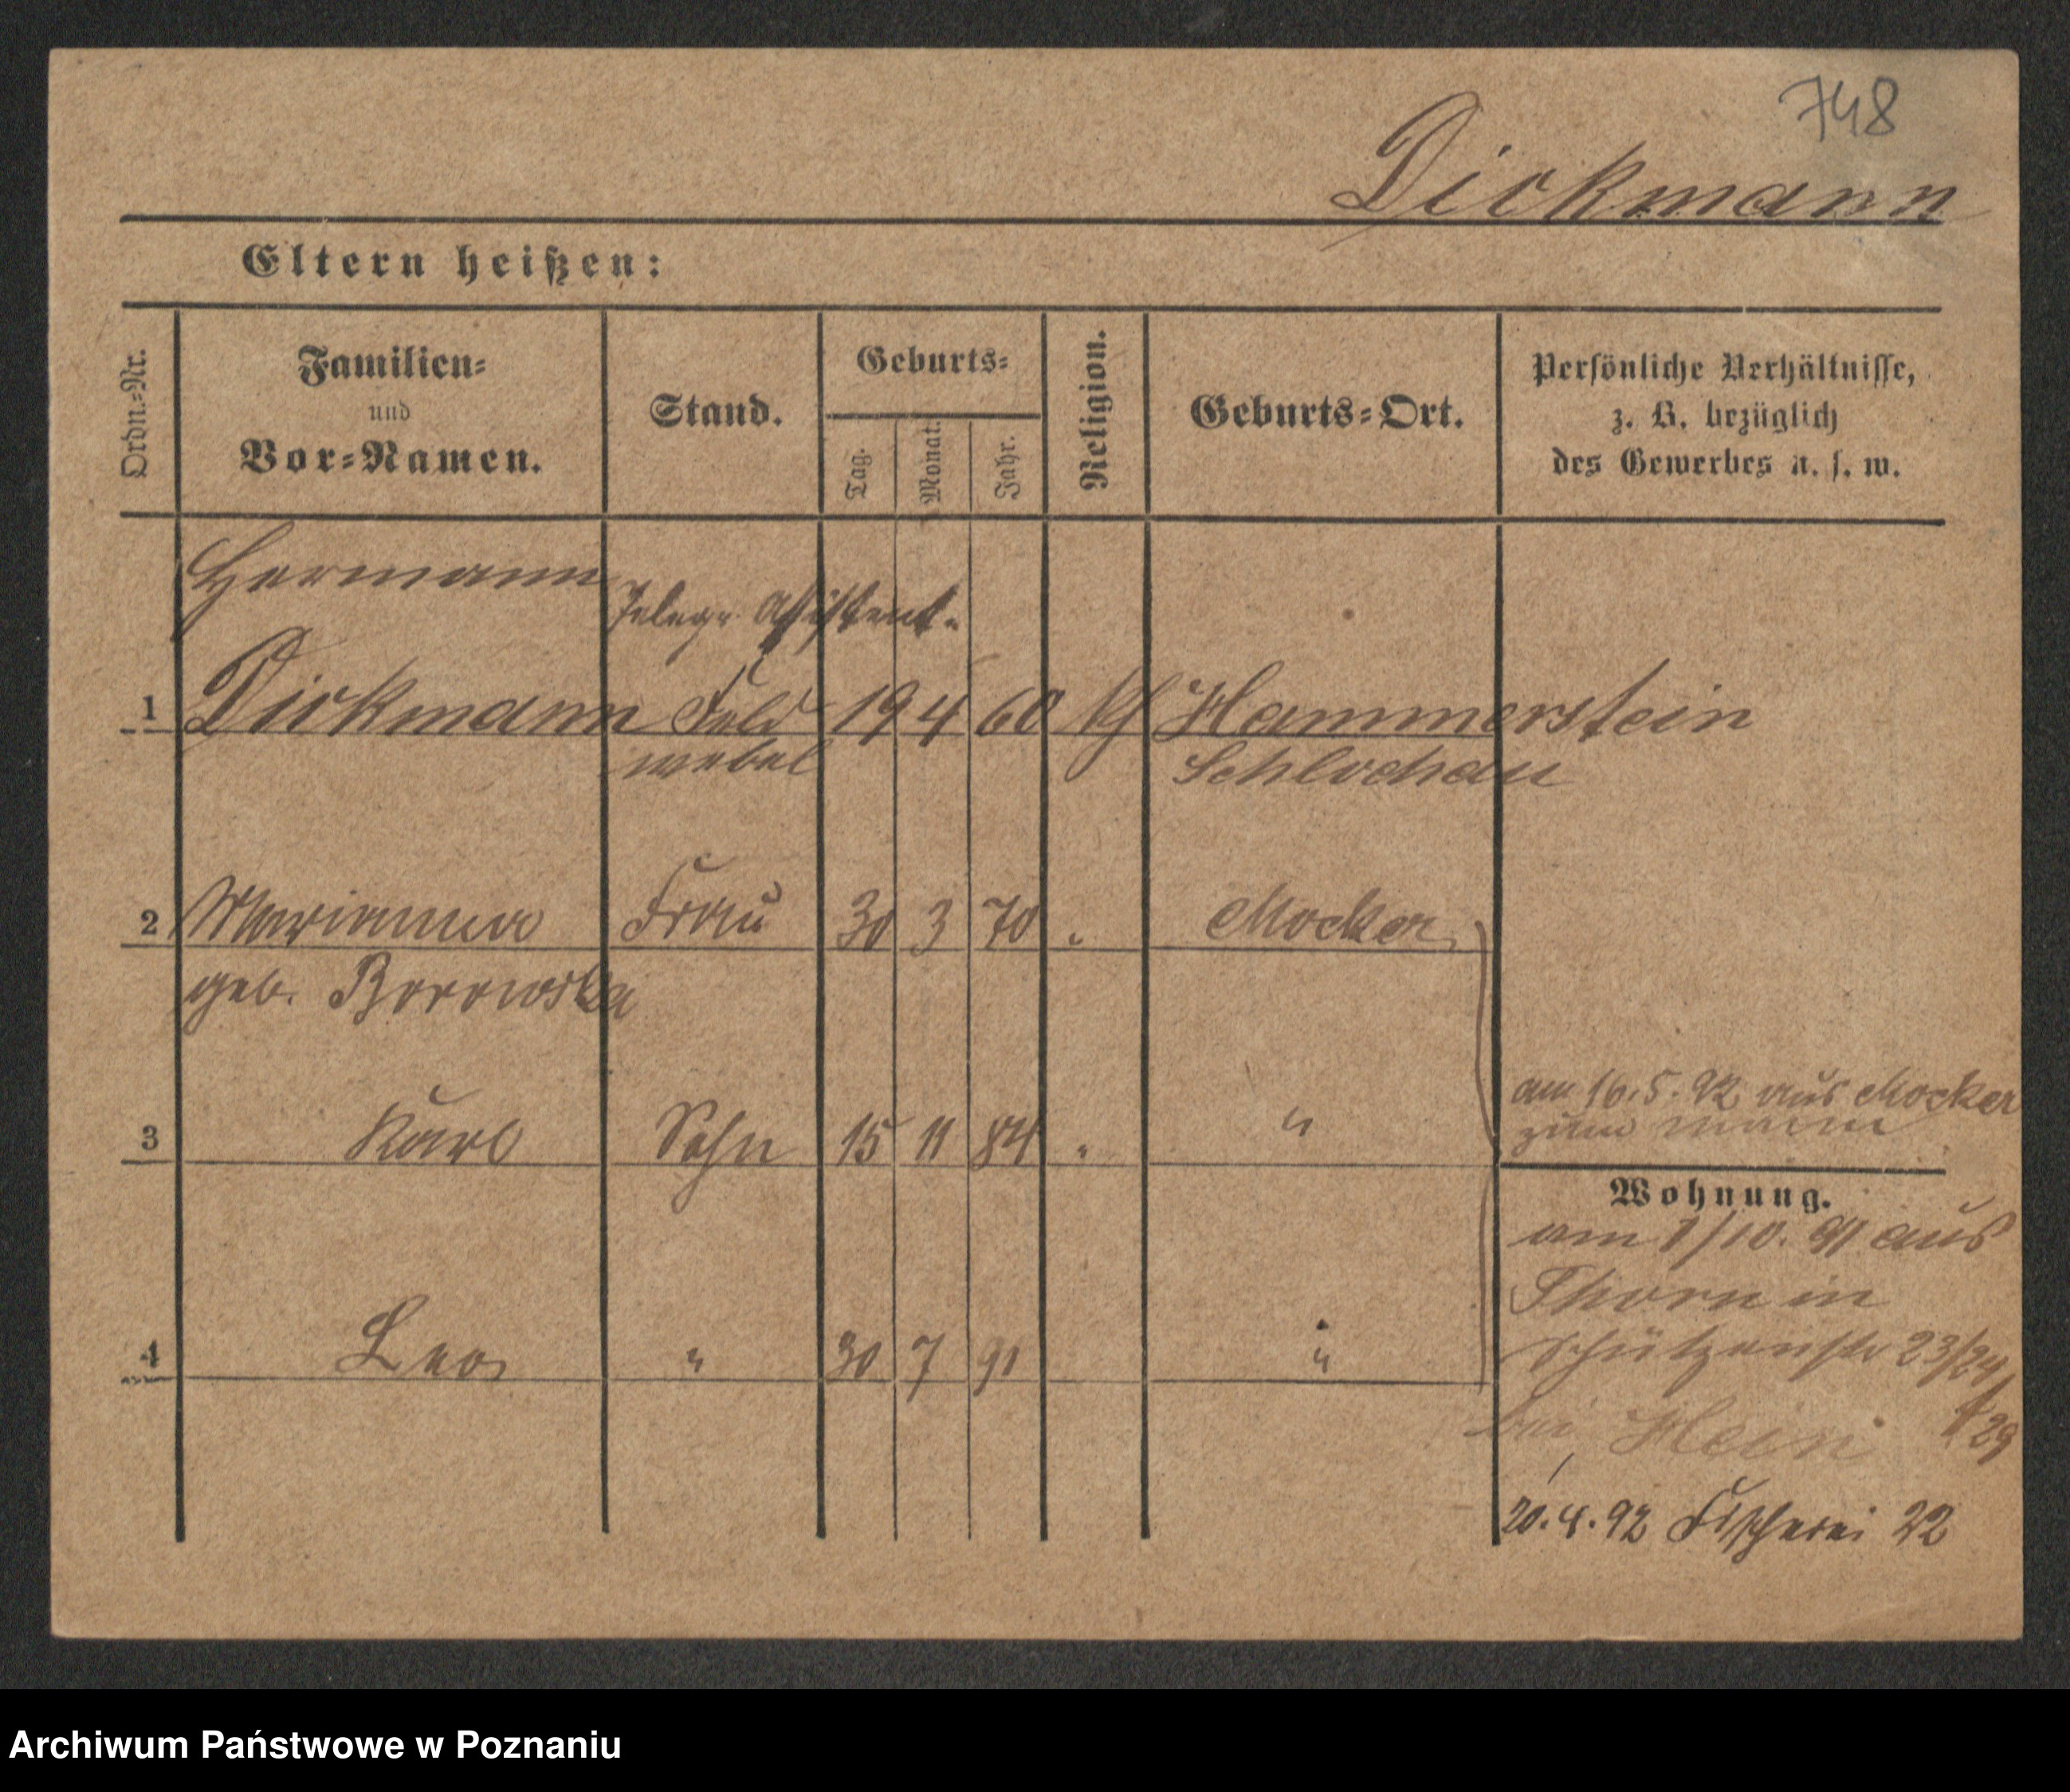 748
Dickmann
Eltern heißen:
Ordn.-Nr.
Familien-
und
Vor-Namen.
Stand.
Geburts-
Tag.
Monat.
Jahr.
Religion.
Geburts-Ort.
Persönliche Verhältnisse,
z. B. bezüglich
des Gewerbes u. s. w.
Hermann
Telegr. Assistent.
1 Dickmann Feld 19 4 60 kth Hammerstein
webel Schlochau
2 Marianna Frau 30 3 70 " Mocker
geb. Borowska
am 16.5.92 aus Mocker
3 Karl Sohn 15 11 84 " "
zum Manne
Wohnung.
am 1/10. 91 aus
Thorn in
4 Leo " 30 7 91 "
Schützenstr 23/24
bei Hein
29
20.4.92 Fischerei 22
Archiwum Państwowe w Poznaniu